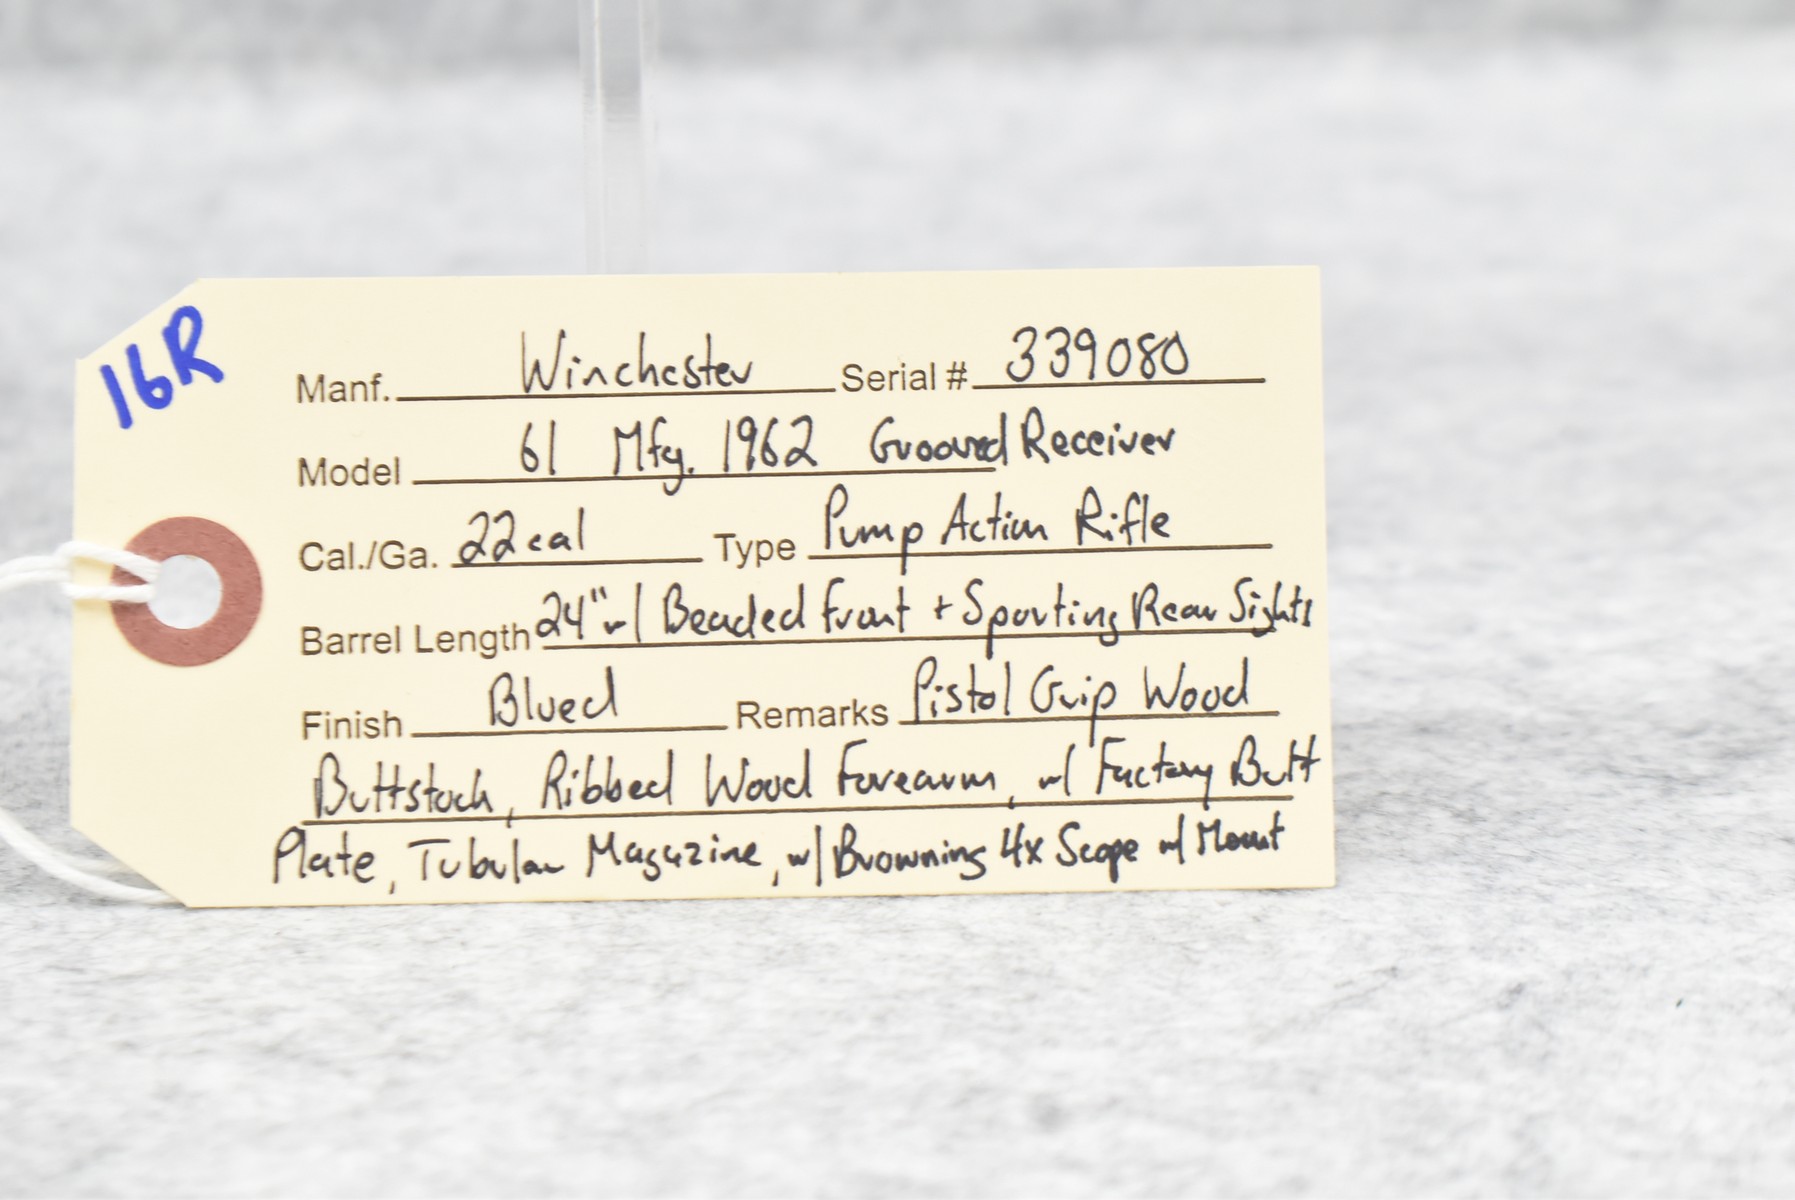 16R
Manf. Winchester Serial # 339080
Model 61 Mfg. 1962 Grooved Receiver
Cal./Ga. 22cal Type Pump Action Rifle
Barrel Length 24" w/ Beaded Front + Sporting Rear Sights
Finish Blued Remarks Pistol Grip Wood
Buttstock, Ribbed Wood Forearm, w/ Factory Butt
Plate, Tubular Magazine, w/ Browning 4x Scope w/ Mount